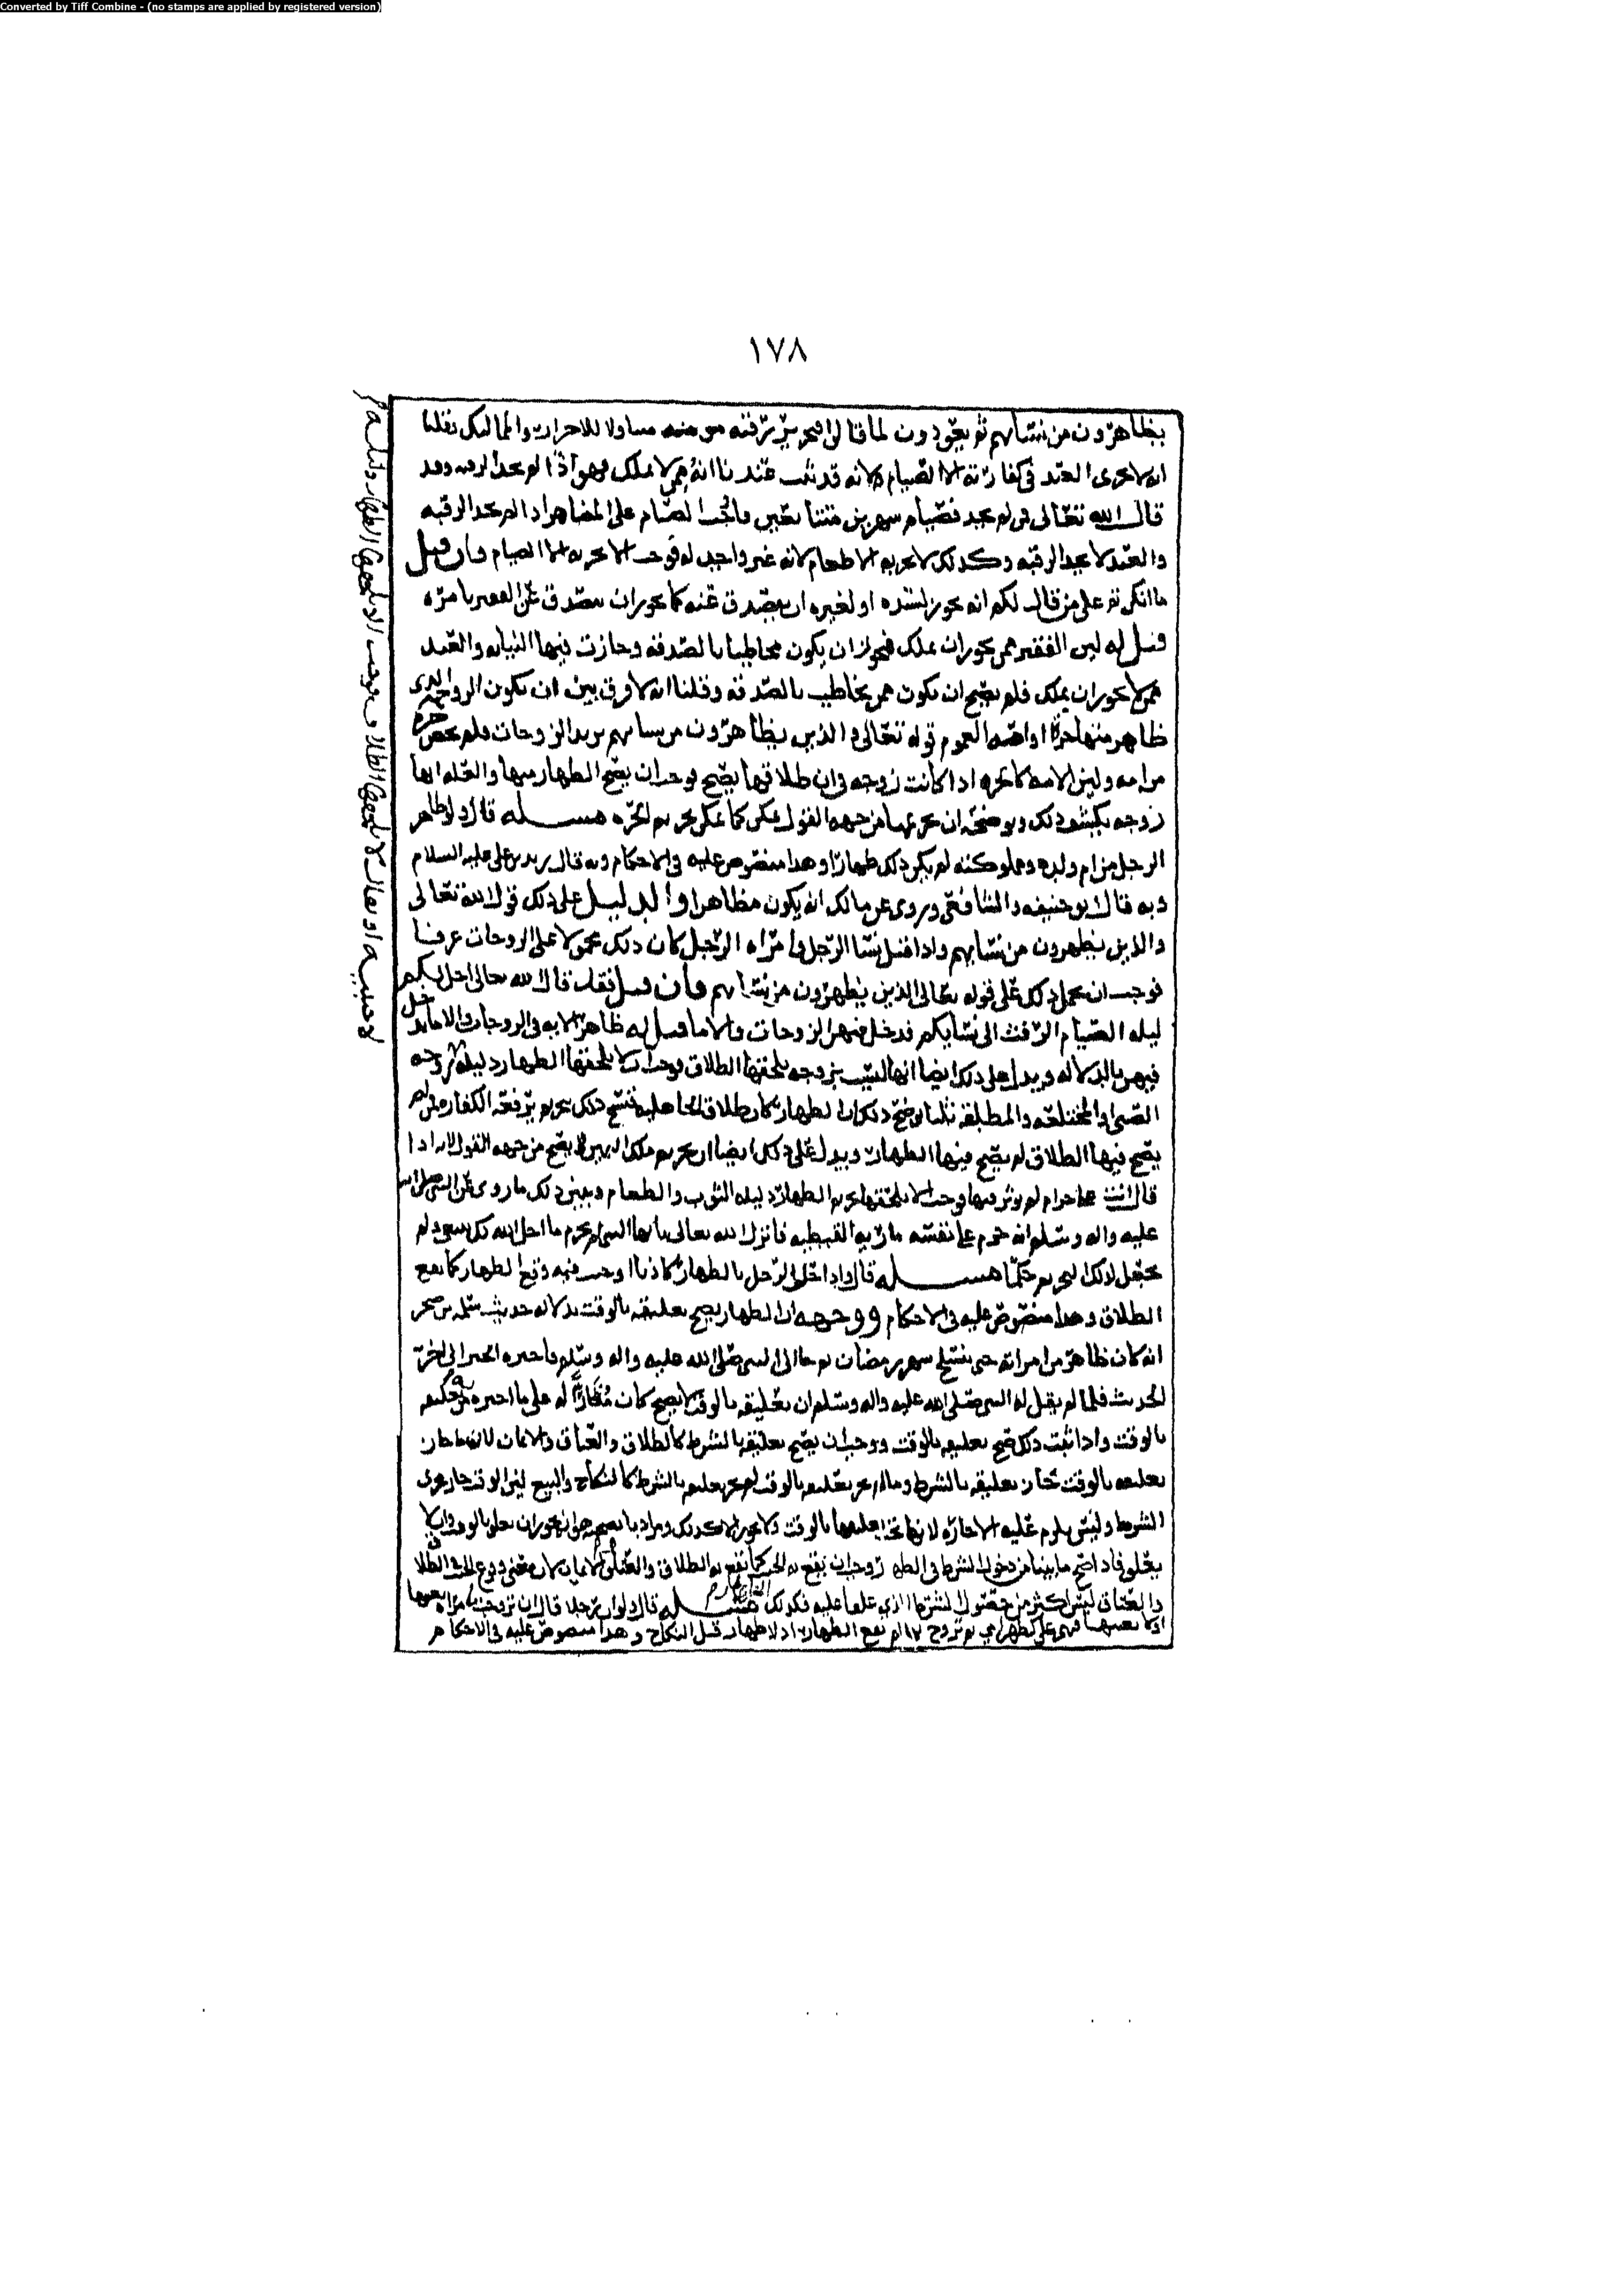 Converted by Tiff Combine - (no stamps are applied by registered version)
١٧٨
يظاهرون من نسائهم ثم يعودون لما قالوا فتحرير رقبه مومنه متناولا للاحرار والمماليك فقلنا
انه لا يجزى العبد في كفارته الا الصيام لانه قد ثبت عندنا انه ممن لا يملك فهو اذا لم يجد الرقبه وقد
قال الله تعالى فمن لم يجد فصيام شهرين متتابعين فاوجب الصيام على المظاهر اذا لم يجد الرقبه
والعبد لا يجد الرقبه وكذلك لا يجزيه الاطعام لانه غير واجد له فوجب الا يجزيه الا الصيام فان قيل
ما انكرتم على من قال لكم انه يجوز لسيده او لغيره ان يتصدق عنه كما يجوز ان يتصدق عن الفقير بامره
قيل له ليس الفقير ممن يجوز ان يملك فيجوز ان يكون مخاطبا بالصدقه وجازت فيها النيابه والعبد
ممن لا يجوز ان يملك فلم يصح ان يكون ممن يخاطب بالصدقه وقلنا انه لا فرق بين ان تكون الزوجه التى
ظاهر منها حرة او امه لعموم قوله تعالى والذين يظاهرون من نسائهم يريد الزوجات فلم يخص حره
من امه وليس الامه كالحره اذا كانت زوجه في ان طلاقها يصح فوجب ان يصح الظهار منها والعله انها
زوجه يكشف ذلك ويوضحه ان تحريمها من جهه القول يمكن كما يمكن تحريم الحره مسله قال ولو ظاهر
الرجل من ام ولده ومملوكته لم يكن ذلك ظهارا وهذا منصوص عليه في الاحكام وبه قال زيد بن على عليه السلام
وبه قال ابو حنيفه والشافعي وروى عن مالك انه يكون مظاهرا والدليل على ذلك قول الله تعالى
والذين يظهرون من نسائهم واذا قيل نسا الرجل وامراه الرجل كان ذلك محمولا على الزوجات عرفا
فوجب ان يحمل ذلك على قوله تعالى الذين يظهرون من نسائهم فان قيل فقد قال الله تعالى احل لكم
ليله الصيام الرفث الى نسايكم فدخل فيهن الزوجات والاما قيل له ظاهر الايه في الزوجات والاما يدخل
فيهن بالدلاله ويدل على ذلك ايضا انها ليست بزوجه يلحقها الطلاق فوجب ان لا يلحقها الظهار دليله من زوجه
الصبى او المختلعه والمطلقه ثلثا يوضح ذلك ان الظهار كان طلاق الجاهليه فنسخ ذلك بتحريم ترفعه الكفاره فمن لم
يصح فيها الطلاق لم يصح فيها الظهار ويدل على ذلك ايضا ان تحريم ملك اليمين لا يصح من جهه القول لانه اذا
قال انت على حرام لم يوثر فيها فوجب الا يلحقها تحريم الظهار دليله الثوب والطعام ويبين ذلك ما روى عن النبى صلى الله
عليه واله وسلم انه حرم على نفسه ماريه القبطيه فانزل الله تعالى يا ايها النبى لم تحرم ما احل الله لك
يجعل لذلك التحريم حكما مسله قال واذا حلف الرجل بالظهار كاذبا اوجب فيه وقع الظهار كما يقع
الطلاق وهذا منصوص عليه في الاحكام ووجهه ان الظهار يصح تعليقه بالوقت بدلاله حديث سلمه بن صخر
انه كان ظاهر من امراته حتى ينسلخ شهر رمضان ثم جا الى النبى صلى الله عليه واله وسلم فاخبره الخبر الى اخر
الحديث فلما لم يقل له النبى صلى الله عليه واله وسلم ان تعليقه بالوقت لا يصح كان مقارا له على ما اخبره من حكمه
بالوقت واذا ثبت ذلك صح تعليقه بالوقت ووجب ان يصح تعليقه بالشرط كالطلاق والعتاق والايمان
تعليقه بالوقت جاز تعليقه بالشرط وما لم يجز تعليقه بالوقت لم يجز تعليقه بالشرط كالنكاح والبيع
الشرط وليس يلزم عليه الاجاره لانها
يعلق فاذا صح ما بينا من دخول الشرط في الظهار وجب ان يقع به الحنث كما يقع به الطلاق والعتاق
والعتاق ليس اكثر من حصول الشرط الذى علقا عليه فكذلك الظهار مسله قال ولو ان رجلا قال ان تزوجت بامراه بعينها
او لا بعينها فهى على كظهر امى ثم تزوج بها لم يقع الظهار اذ لا ظهار قبل النكاح وهذا منصوص عليه في الاحكام